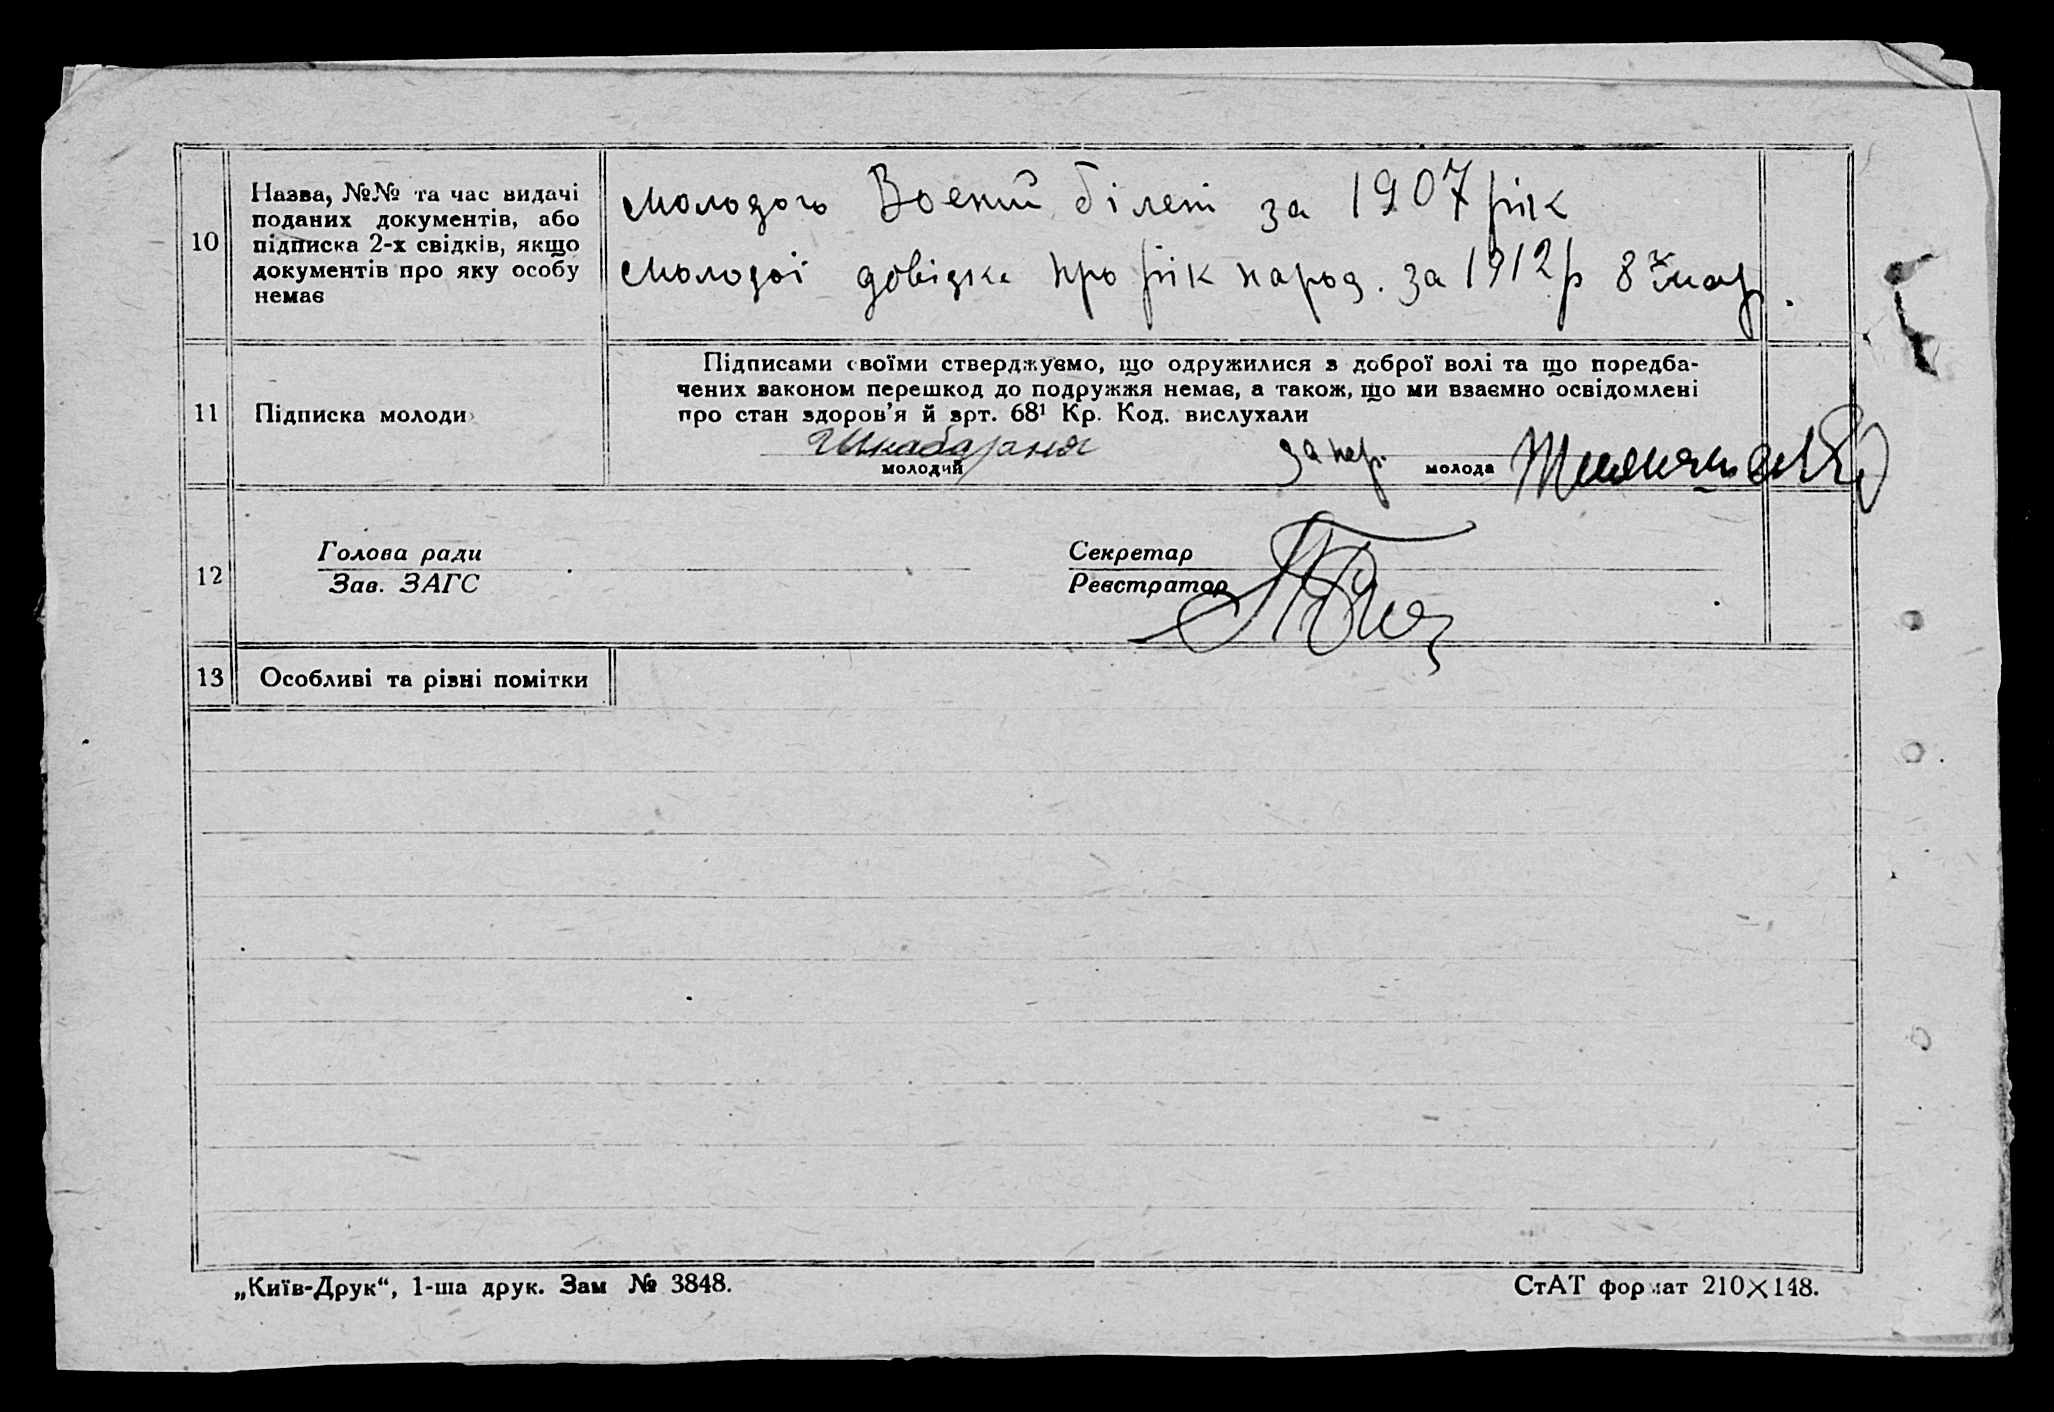 10
Назва, №№ та час видачі
поданих документів, або
підписка 2-х свідків, якщо
документів про яку особу
немає
молодого Воений білет за 1907 рік
молодої довідка про рік народ. за 1912 р 8
11
Підписка молоди
Підписами своїми стверджуємо, що одружилися з доброї волі та що поредба-
чених законом перешкод до подружжя немає, а також, що ми взаємно освідомлені
про стан здоров'я й врт. 68¹ Кр. Код. вислухали
молодий
за нер. молода
12
Голова ради
Зав. ЗАГС
Секретар
Реєстратор
13
Особливі та різні помітки
„Київ-Друк“, 1-ша друк. Зам № 3848.
СтАТ формат 210×148.